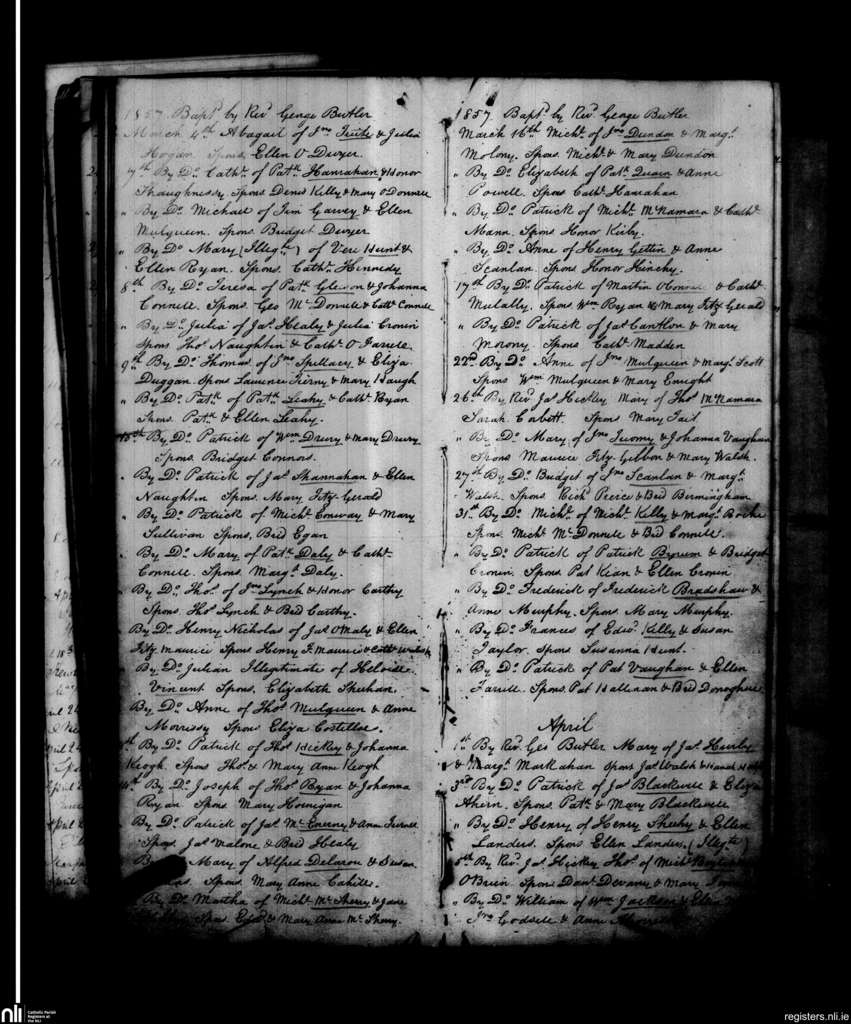 1857 Bapts by Revd George Butler
March 4th Abagail of Jno & Julia
Hogan Spons. Ellen O Dwyer.
7th By Do Cathn. of Patk Hanrahan & Honor
Shaughnessy Spons Denis Kelly & Mary O'Donnell
" By Do Michael of Jim Garvey & Ellen
Mulqueen. Spons Bridget Dwyer
" By Do Mary (Illegte) of Vere Hunt &
Ellen Ryan. Spons. Cathn. Hennedy
8th By Do Teresa of Patk Gleeson & Johanna
Connell. Spons. Geo Mc Donnell & Cathn Connell
" By Do Julia of Jas Healy & Julia Cronin
Spons Thos Naughtin & Cathn O Farrell
9th By Do Thomas of Jno Spellacy & Eliza
Duggan. Spons Laurence Tierny & Mary Haugh
" By Do Patk of Patk Leahy & Cathn Ryan
Spons. Patk & Ellen Leahy.
By Do Patrick of Wm Drury & Mary Drury
Spons. Bridget Connors.
By Do Patrick of Jas Shannahan & Ellen
Naughtin Spons. Mary Fitz-Gerald
By Do Patrick of Michl Conway & Mary
Sullivan Spons, Brd Egan
By Do Mary of Patk Daly & Cathn
Connell. Spons. Margt Daly.
By Do Thos. of Jno Lynch & Honor Carthy
Spons. Thos Lynch & Brd Carthy.
By Do Henry Nicholas of Jas O'Maly & Ellen
Fitz-maurice Spons Henry F. Maurice & Cathn Walsh
By Do Julian Illegtimate of
Vincent Spons. Elizabeth Shuhan.
By Do Anne of Thos Mulqueen & Anne
Morrissy Spons Eliza Costelloe.
By Do Patrick of Thos Hickey & Johanna
Keogh Spons Thos & Mary Anne Keogh
By Do Joseph of Thos Ryan & Johanna
Ryan Spons Mary Hornigan
By Do Patrick of Jas McEnerny & Anne
Spons. Jas Malone & Brd Healy
Mary of Alfred & Susan
Spons. Mary Anne Cahill.
By Do Martha of Michl McSherry & Jane
Spons. & Mary Anne McSherry.
1857 Bapts by Revd George Butler
March 16th Michl of Jno Dundon & Margt
Molony. Spons. Michl & Mary Dundon
" By Do Elizabeth of Patk Quain & Anne
Powell. Spons Cathn Hanrahan
" By Do Patrick of Michl McNamara & Cathn
Mann. Spons Honor Kirby.
" By Do Anne of Henry Gettin & Anne
Scanlan. Spons Honor Hinchy.
17th By Do Patrick of Martin O'Connor & Cathn
Mullally. Spons. Wm Ryan & Mary Fitz Gerald
" By Do Patrick of Jas Cantlon & Mary
Molony. Spons Cathn Madden
22nd By Do Anne of Jno Mulqueen & Margt Scott
Spons Wm Mulqueen & Mary Enright
26th By Revd Jas Hickey Mary of Thos McNamara
Sarah Corbett. Spons Mary Tait
" By Do Mary of Jno Twomy & Johanna Vaughan
Spons Maurice Fitz-Gibbon & Mary Walsh
27th By Do Bridget of Jno Scanlan & Margt
Walsh. Spons Richd Peirce & Brd Birmingham
31st By Do Michl of Michl Kelly & Margt Roche
Spons Michl McDonnell & Brd Connell.
" By Do Patrick of Patrick & Bridget
Cronin. Spons Pat Kean & Ellen Cronin
" By Do Frederick of Frederick Bradshaw &
Anne Murphy. Spons Mary Murphy.
" By Do Frances of Edwd Kelly & Susan
Taylor. Spons Susanna Hunt.
" By Do Patrick of Pat Vaughan & Ellen
Farrell. Spons Pat Hallinan & Brd Donoghue
April
1st By Revd Geo Butler Mary of Jas Hurly
& Margt Markahan Spons Jas Walsh &
3rd By Do Patrick of Jas Blackwell & Eliza
Ahern. Spons. Patk & Mary Blackwell
" By Do Henry of Henry Sheehy & Ellen
Landers. Spons Ellen Landers. (Illegte)
5th By Revd Jas Hickey Thos of Michl
O'Brien. Spons Danl Devany & Mary
" By Do William of Wm Jackson &
Jno Godsell & Anne
nli
Catholic Parish
Registers at
the NLI
registers.nli.ie